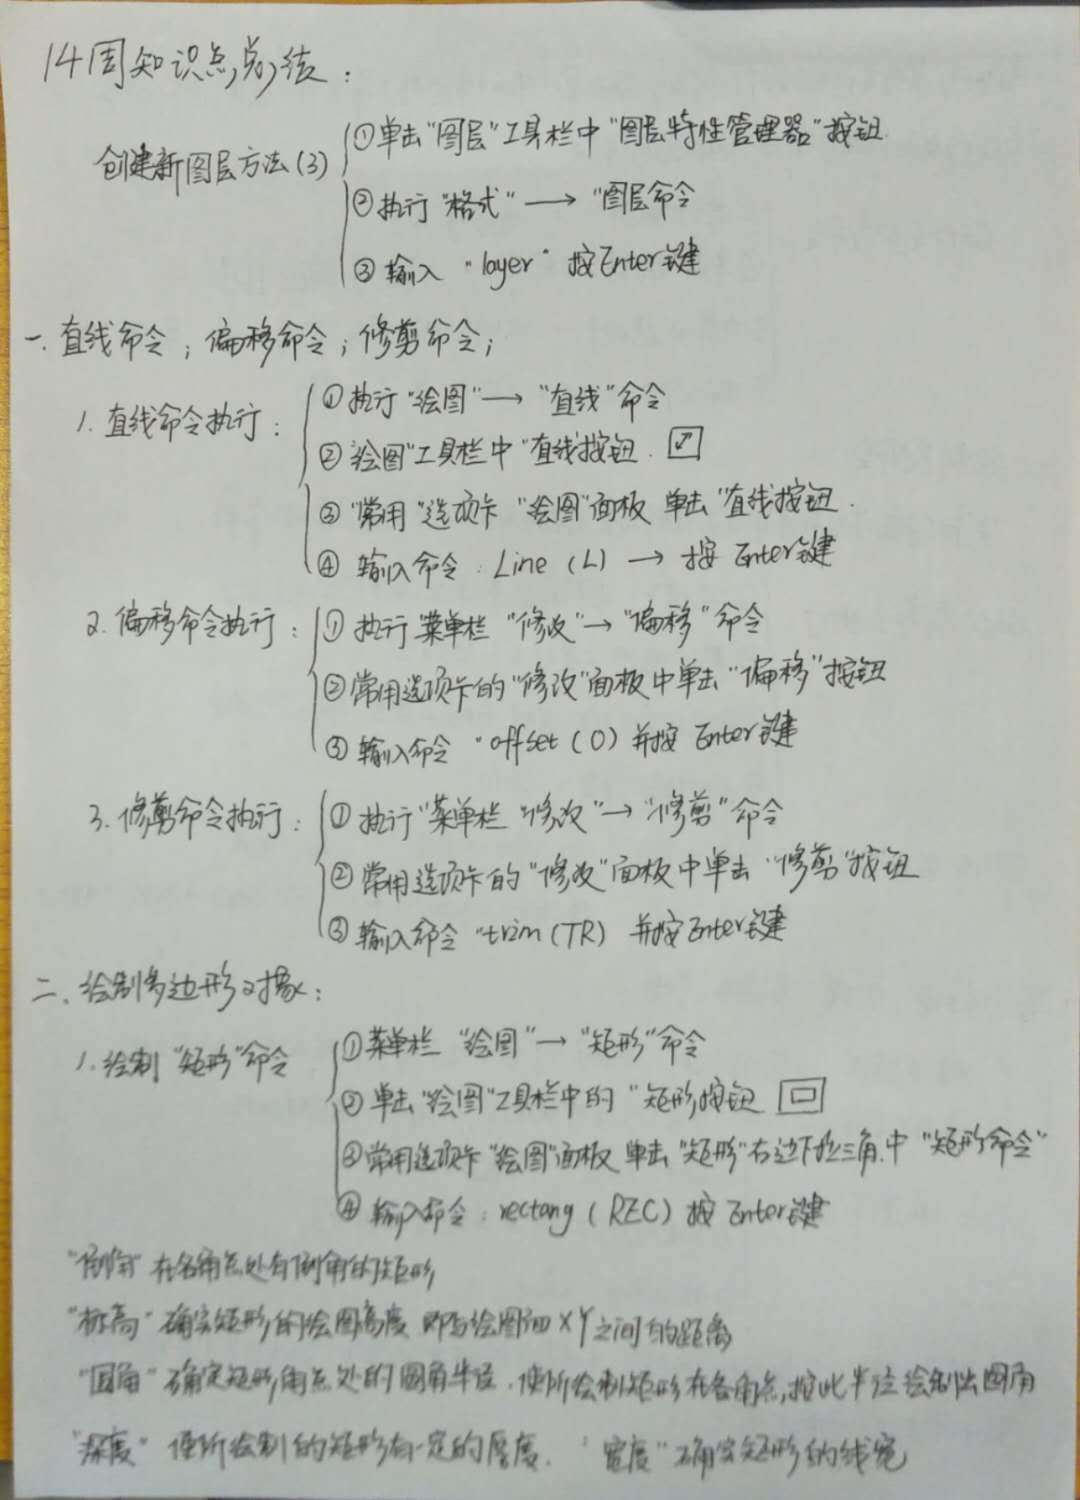 14周知识点总结:
创建新图层方法(3)
①单击"图层"工具栏中"图层特性管理器"按钮.
②执行"格式"→"图层命令
③输入"layer"按Enter键
一.直线命令;偏移命令;修剪命令;
1.直线命令执行:
①执行"绘图"→"直线"命令
②"绘图"工具栏中"直线按钮.
③"常用"选项卡"绘图"面板 单击"直线按钮.
④输入命令:Line(L)→按Enter键
2.偏移命令执行:
①执行菜单栏"修改"→"偏移"命令
②常用选项卡的"修改"面板中单击"偏移"按钮
③输入命令"offset(O)并按Enter键
3.修剪命令执行:
①执行"菜单栏"修改"→"修剪"命令
②常用选项卡的"修改"面板中单击"修剪"按钮
③输入命令"trim(TR)并按Enter键
二.绘制多边形对象:
1.绘制"矩形"命令
①菜单栏"绘图"→"矩形"命令
②单击"绘图"工具栏中的"矩形按钮
③常用选项卡"绘图"面板 单击"矩形"右边下拉三角.中"矩形命令"
④输入命令:rectang(REC)按Enter键
"倒角"在各角点处有倒角的矩形
"标高"确定矩形的绘图高度 即与绘图面XY之间的距离
"圆角"确定矩形角点处的圆角半径.使所绘制矩形在各角点按此半径绘制出圆角
"深度"使所绘制的矩形有一定的厚度. "宽度"确定矩形的线宽